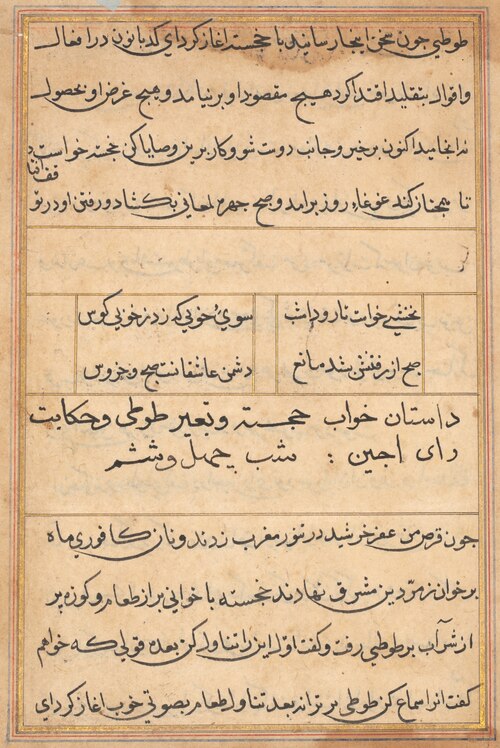 طوطی چون سخن اینجا رسانید با خجسته اغاز کرد ای کدبانو در افعال
و اقوال بتقلید اقتدا کرد هیچ مقصود او بر نیامد و هیچ غرض او بحصول
نه انجامید اکنون برخیز و جانب دوست شو و کار برین وصایا کن خجسته خواست
تا همچنان کند غوغاء روز برامد و صبح چهره لمعانی بکشاد و رفتن او در توقف افتاد
نخشبی خواست تا رود امشب
سوی خوبی که زد ز خوبی کوس
صبح از رفتنش بشد مانع
دشمن عاشقانست صبح و خروس
داستان خواب خجسته و تعبیر طوطی و حکایت
رای اجین : شب چهل و ششم
چون قرص من عفر خرشید در تنور مغرب زدند و نان کافوری ماه
بر خوان زمردین مشرق نهادند خجسته با خوانی پر از طعام و کوزه پر
از شراب بر طوطی رفت و کفت اول این را تناول کن بعده قولی که خواهم
کفت انرا سماع کن طوطی بر ترانه بعد تناول طعام بصوتی خوب اغاز کرد ای